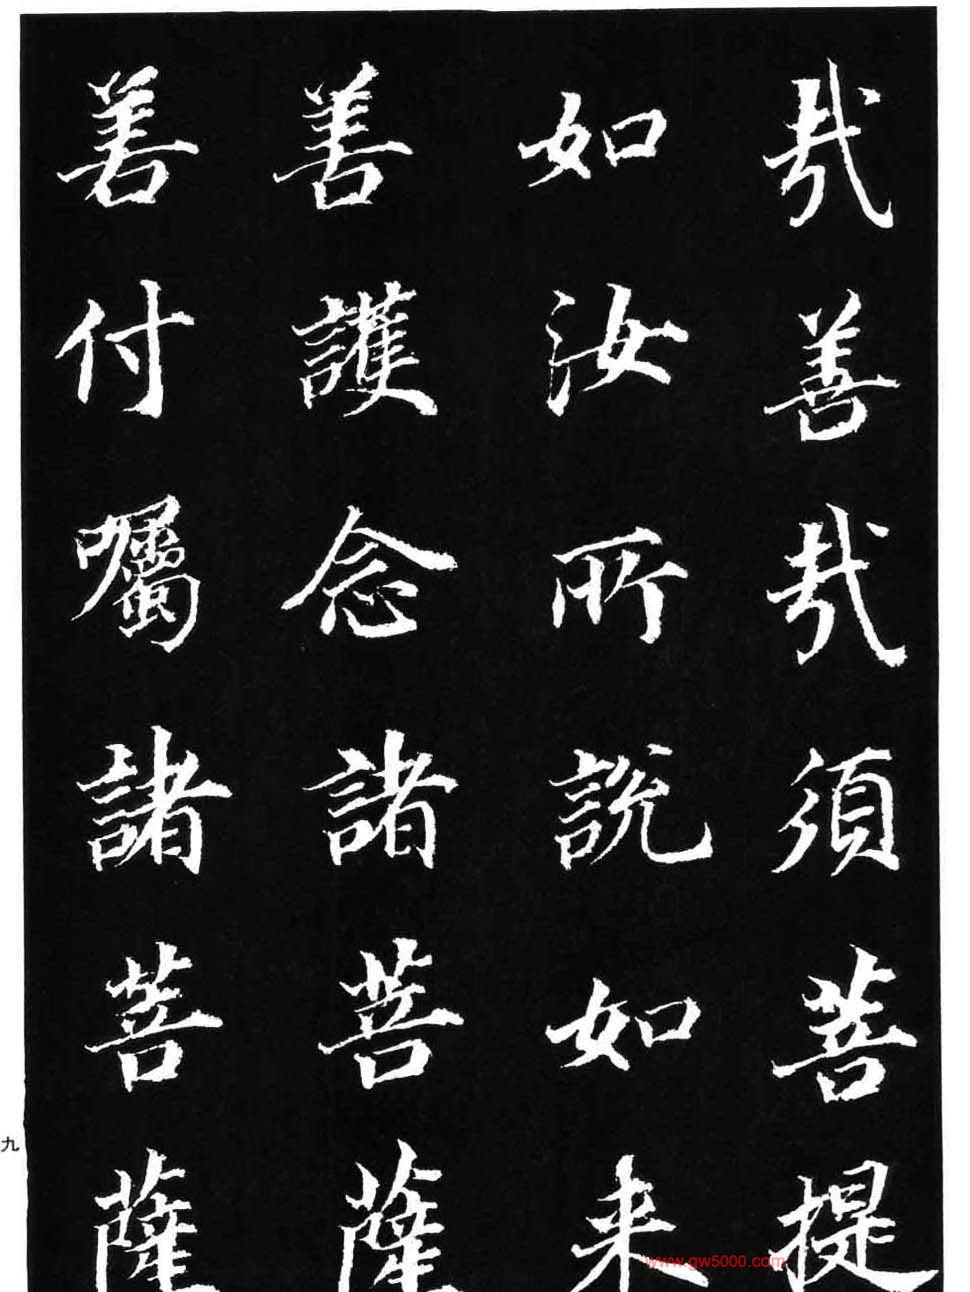 哉善哉須菩提
如汝所說如来
善護念諸菩薩
善付囑諸菩薩
九
www.gw5000.com